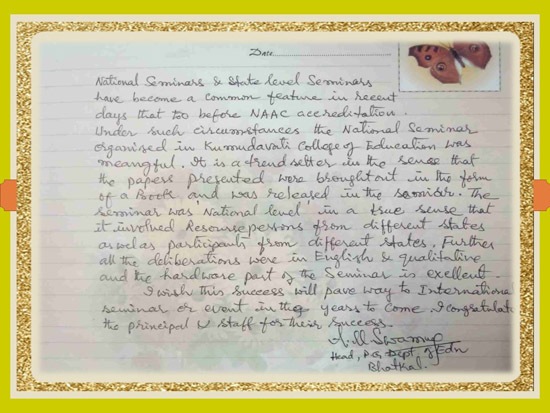 Date
National Seminars & State level Seminars
have become a common feature in recent
days that too before NAAC accreditation.
Under such circumstances the National Seminar
organised in Kumudavati College of Education was
meaningful. It is a trend setter in the sense that
the papers presented were brought out in the form
of a Book and was released in the seminar. The
seminar was National level in a true sense that
it involved Resource persons from different states
as well as participants from different states. Further
all the deliberations were in English & qualitative
and the hardware part of the Seminar is excellent.
I wish this success will pave way to International
seminar or event in the years to come. I congratulate
the principal & staff for their success.
Swamy
Head, P.G. Dept. of Edn
Bhatkal.